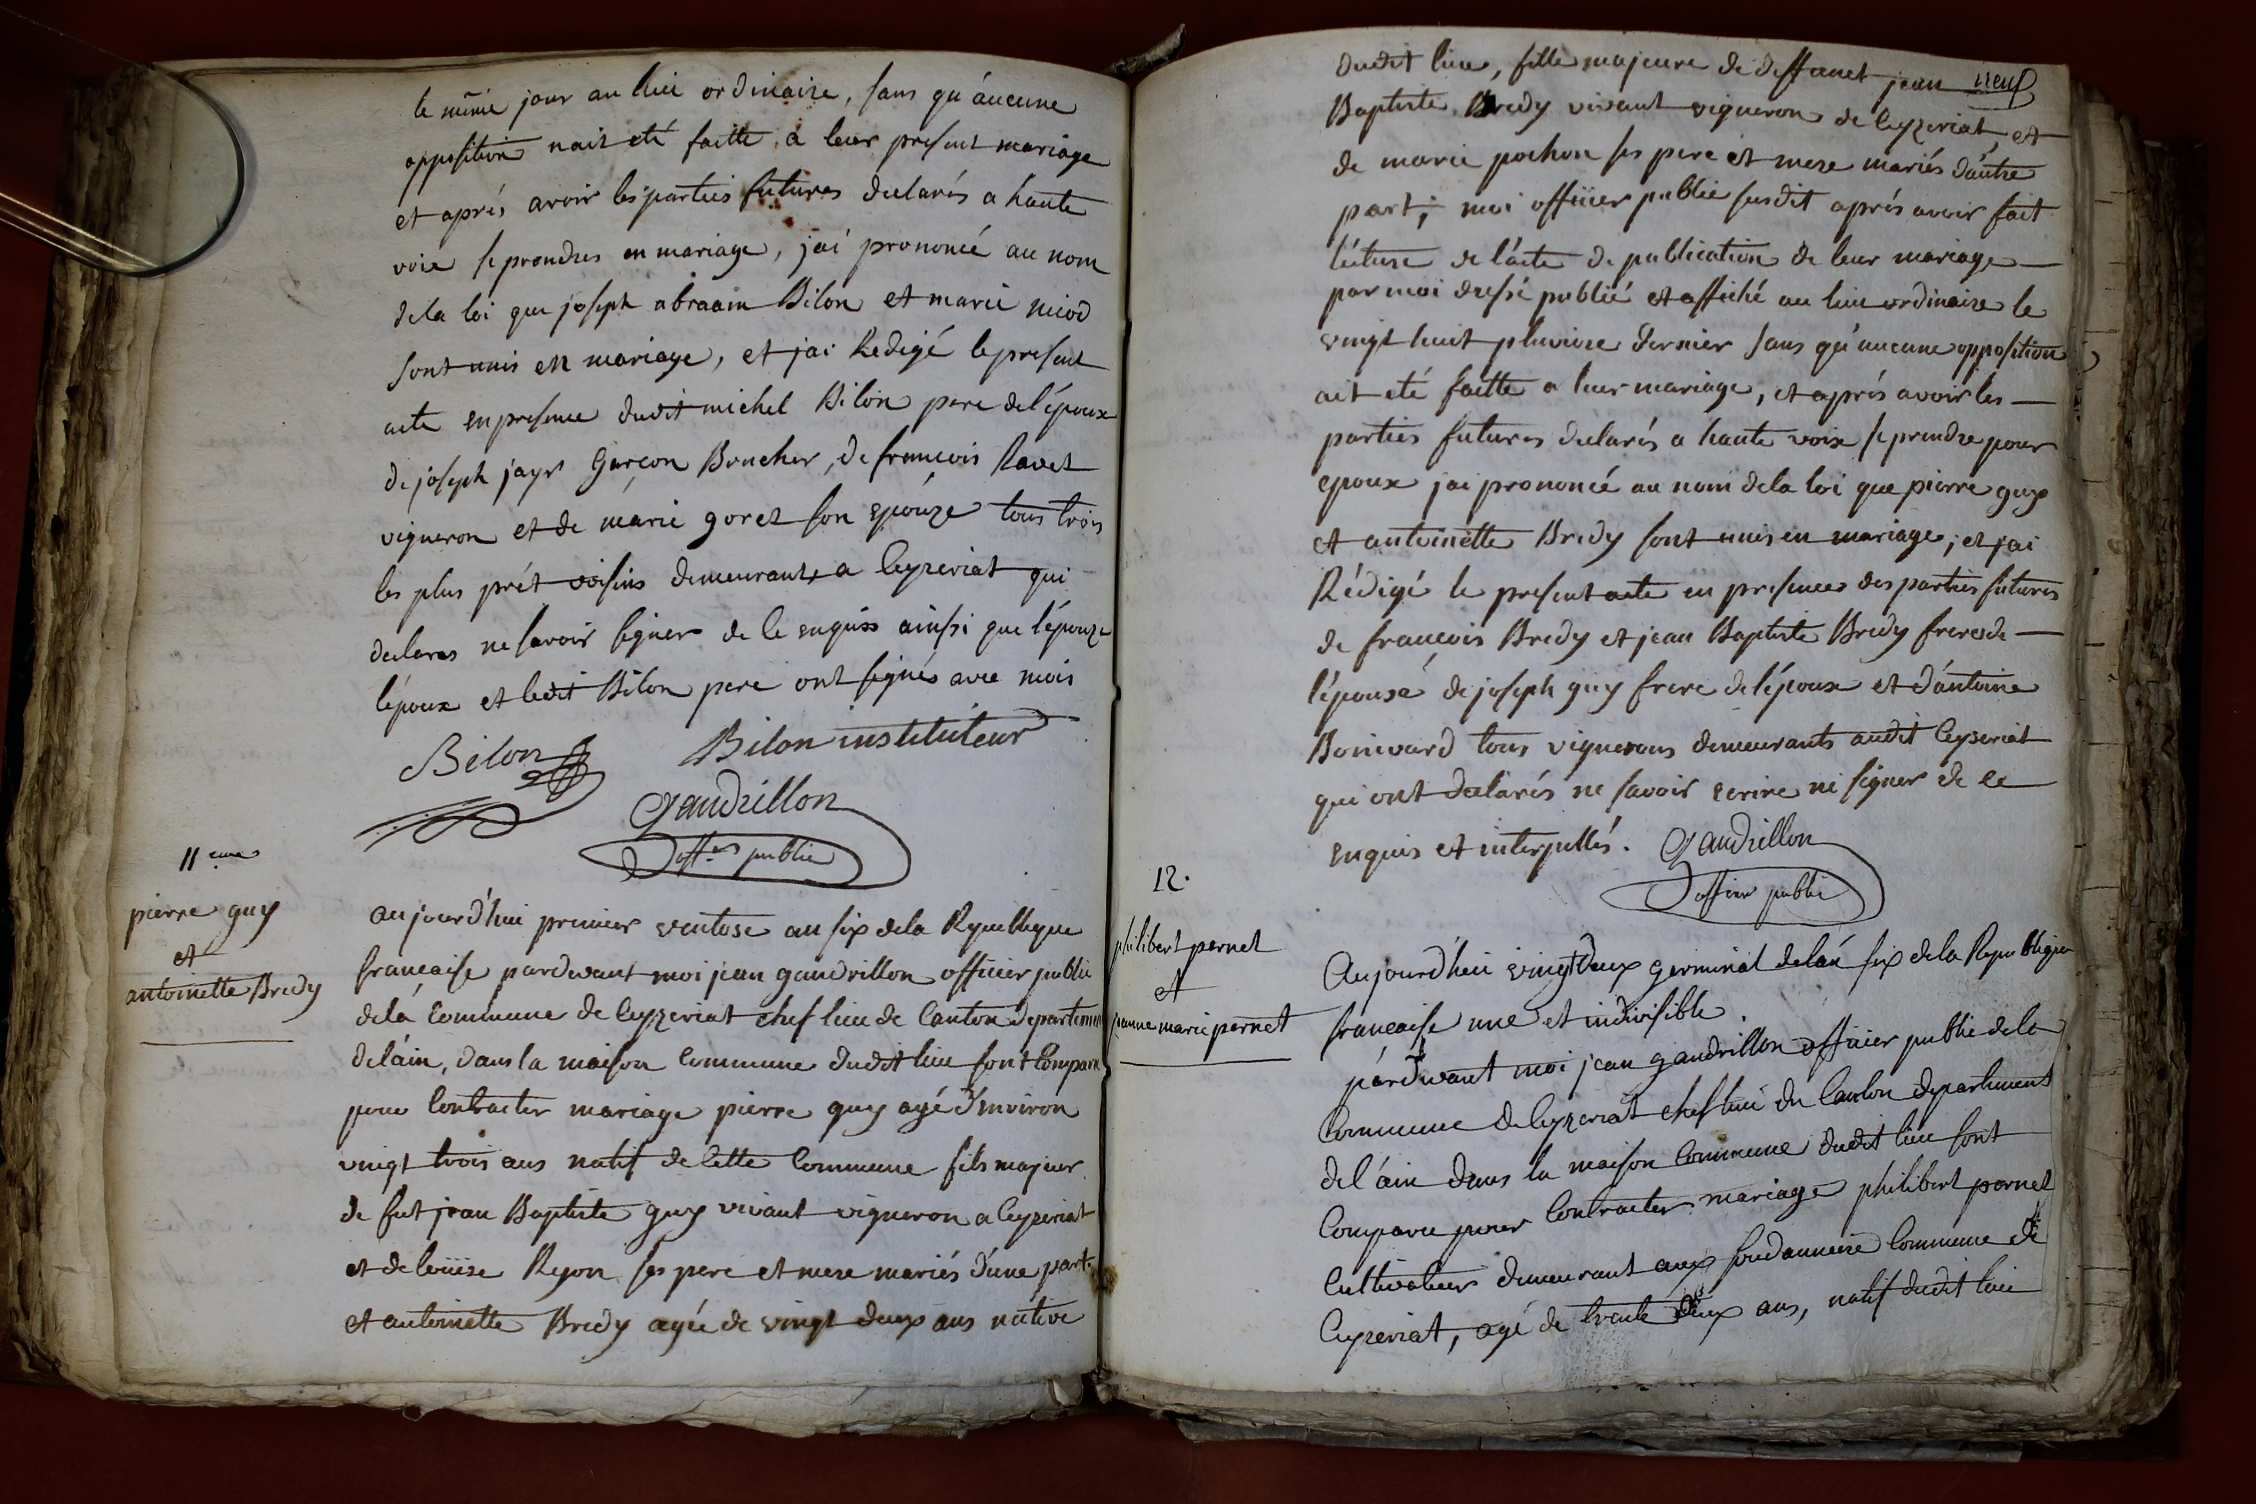 le même jour au lieu ordinaire, sans qu'aucune
opposition nait eté faitte a leur present mariage
et aprés avoir les parties futures declarés a haute
voix se prendres en mariage, j'ai prononcé au nom
de la loi que joseph abraam Bilon et marie niod
sont unis en mariage, et j'ai Redigé le present
acte en presence dudit michel Bilon pere de l'époux
de joseph jayr Garçon Boucher, de francois Ravet
vigneron et de marie goret son epouze tous trois
les plus prét voisins demeurants a Ceyzeriat qui
declares ne savoir signer de ce enquiss ainsi que l'épouze
l'époux et ledit Bilon pere ont signés avec mois
Bilon Bilon instituteur
Gaudrillon
offier public
11eme
pierre guy
et
antoinette Bredy
aujourd'hui premier ventose an six de la Republique
francaise pardevant moi jean gaudrillon officier public
de la Commune de Ceyzeriat chef lieu de Canton departement
de l'ain, dans la maison Commune dudit lieu sont Comparu
pour Contracter mariage pierre guy agé d'environ
vingt trois ans natif de Cette Commune fils majeur
de fut jean Baptiste guy vivant vigneron a Ceyzeriat
et de louise Reyon ses pere et mere mariés d'une part
et antoinette Bredy agée de vingt deux ans native
neuf
dudit lieu, fille majeure de deffunct jean
Baptiste Bredy vivant vigneron de Ceyzeriat et
de marie pochon ses pere et mere mariés d'autre
part; moi officier public susdit aprés avoir fait
lecture de l'acte de publication de leur mariage
par moi dressé publié et affiché au lieu ordinaire le
vingt huit pluviose dernier sans qu'aucune opposition
ait eté faitte a leur mariage, et aprés avoir les
parties futures declarés a haute voix se prendre pour
epoux j'ai prononcé au nom de la loi que pierre guy
et antoinette Bredy sont unis en mariage, et j'ai
Rédigé le present acte en presences des parties futures
de francois Bredy et jean Baptiste Bredy freres de
l'épouse de joseph guy frere de l'époux et d'antoine
Bonivard tous vignerons demeurants audit Ceyseriat
qui ont declarés ne savoir ecrire ni signer de ce
enquis et interpellés. Gaudrillon
officier public
12.
philibert pernet
et
jeanne marie pernet
Aujourd'hui vingt deux germinal de l'an six de la Republique
francaise une et indivisible.
pardevant moi jean gaudrillon officier public de la
Commune de Ceyzeriat chef lieu du Canton departement
de l'ain dans la maison Commune dudit lieu sont
Comparu pour Contracter mariage philibert pernet
Cultivateur demeurant aux Commune de
Ceyzeriat, agé de trente deux ans, natif dudit lieu